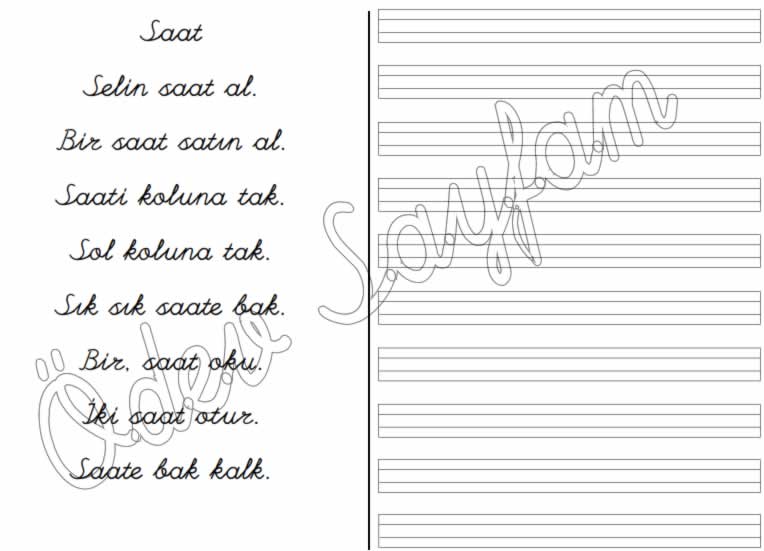 Saat
Selin saat al.
Bir saat satın al.
Saati koluna tak.
Sol koluna tak.
Sık sık saate bak.
Bir, saat oku.
İki saat otur.
Saate bak kalk.
Ödev Sayfam